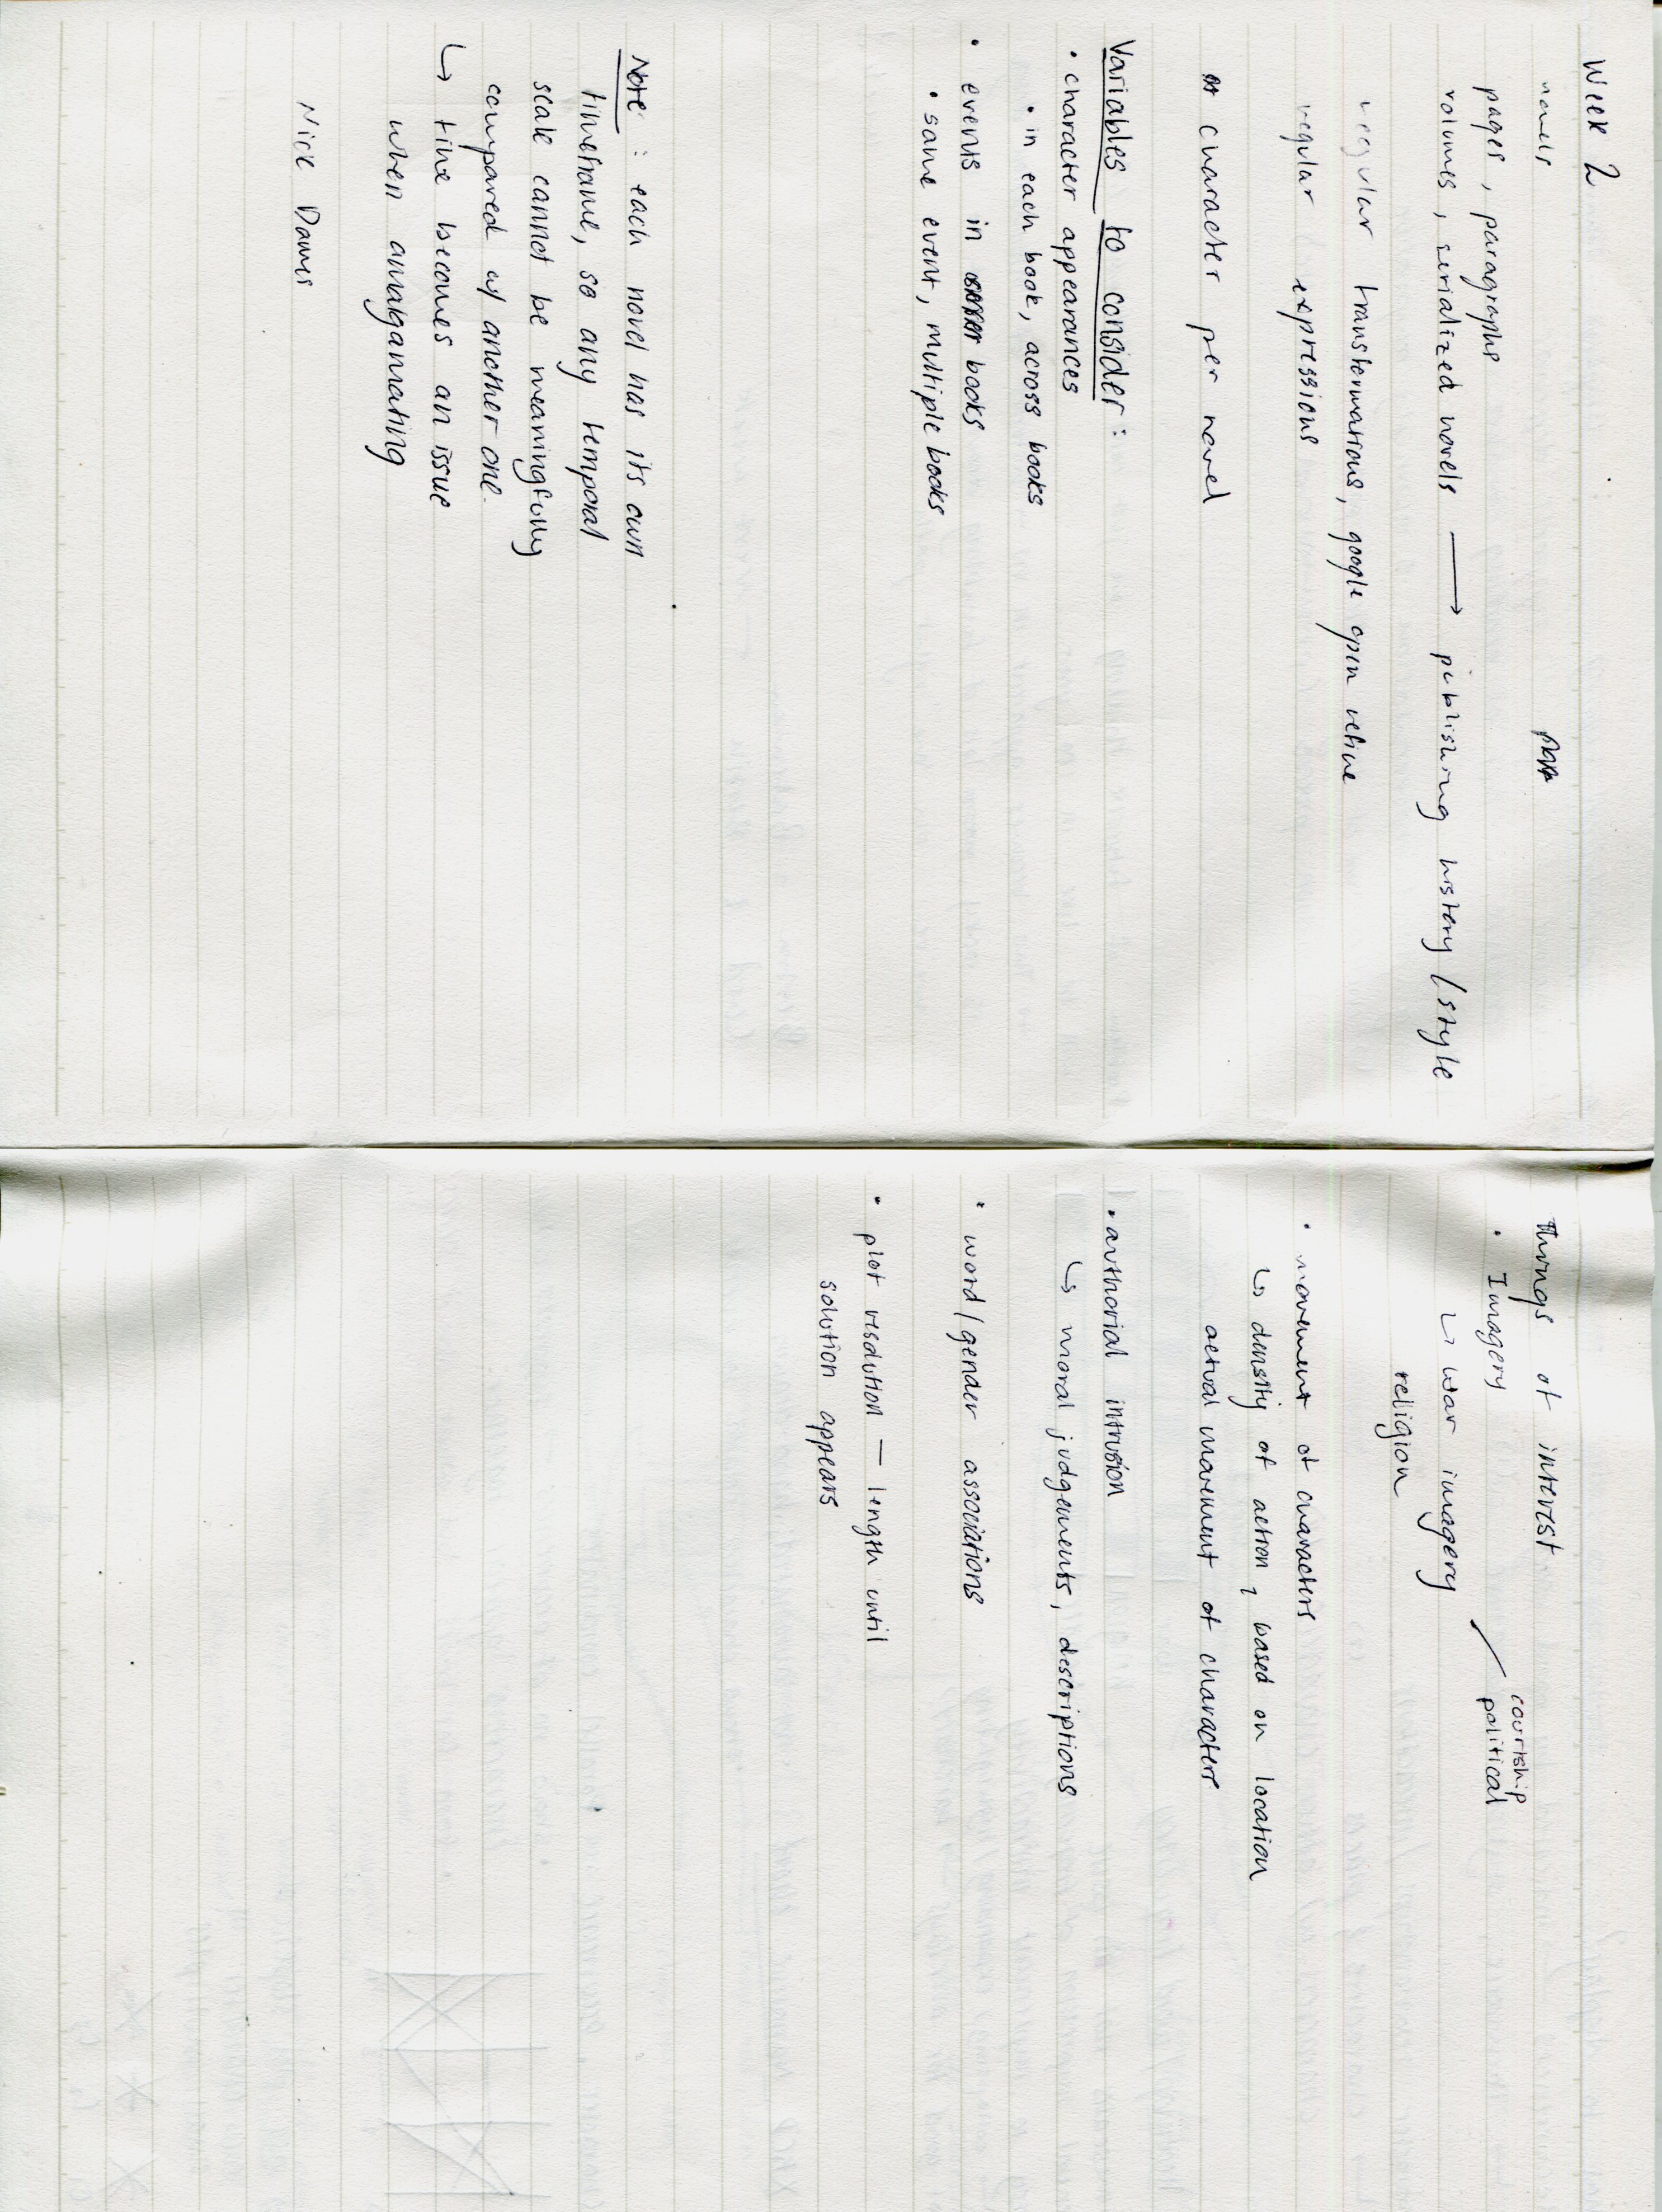 Week 2
novels
pages, paragraphs
volumes, serialized novels → publishing history / style
regular transformations, google open refine
regular expressions
character per novel
Variables to consider:
• character appearances
• in each book, across books
• events in books
• same event, multiple books
Note: each novel has its own
timeframe, so any temporal
scale cannot be meaningfully
compared w/ another one.
↳ time becomes an issue
when amalgamating
Nick Dames
Things of interest
• Imagery
courtship
political
↳ war imagery
religion
• movement of characters
↳ density of action, based on location
actual movement of characters
• authorial intrusion
↳ moral judgements, descriptions
• word/gender associations
• plot resolution — length until
solution appears